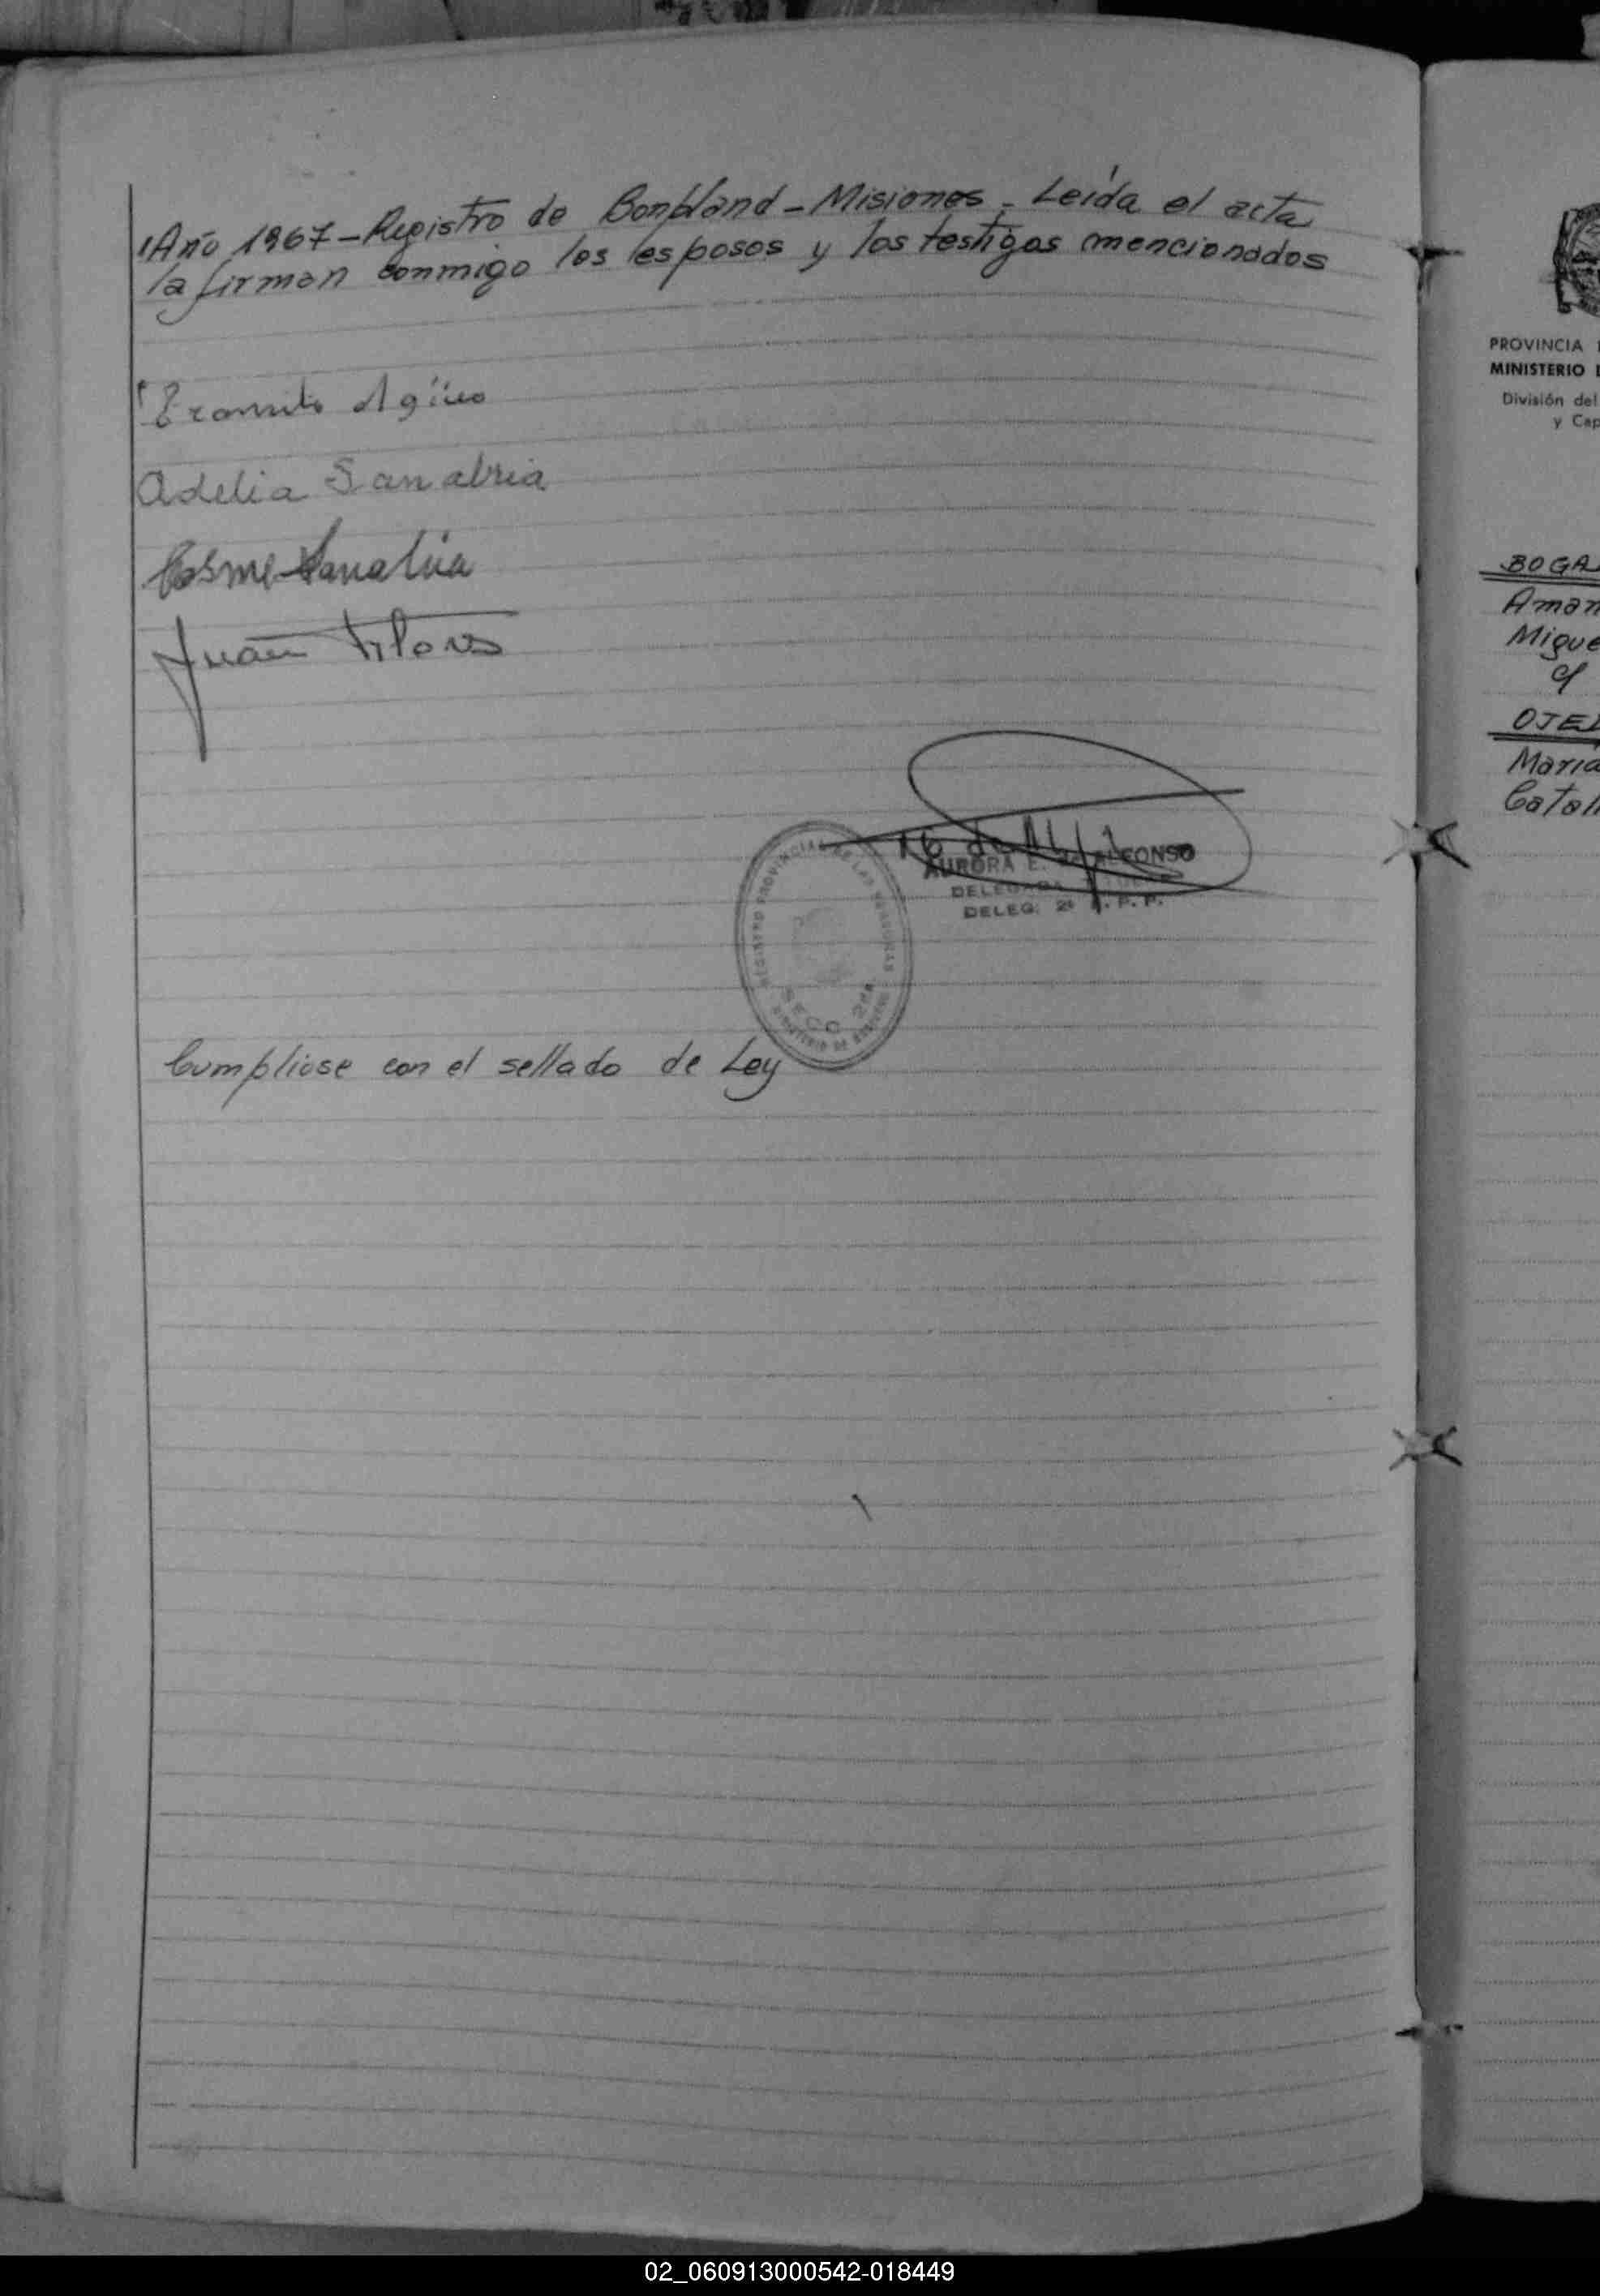 Año 1967 - Registro de Bonpland - Misiones - Leída el acta
la firman conmigo los esposos y los testigos mencionados
Transito Agüero
Adelia Sanabria
Cosme Sanabria
Juan Flores
AURORA E. ALFONSO
DELEGADA
DELEG. 2ª R. P. P.
REGISTRO PROVINCIAL DE LAS PERSONAS
SECC 2da.
MINISTERIO DE GOBIERNO
Cumpliose con el sellado de Ley
PROVINCIA
MINISTERIO
División del
y Cap
BOGA
Aman
Migue
c/
OJED
Maria
Catal
02_060913000542-018449